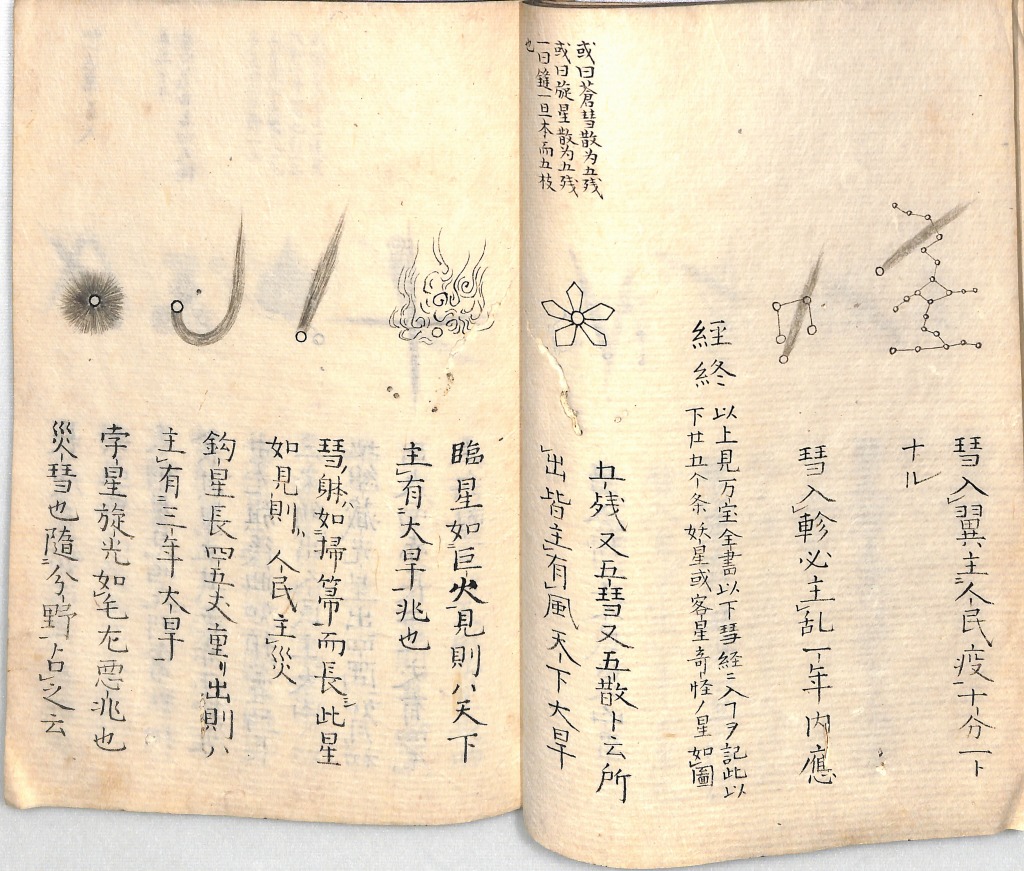 彗入翼主人民疫十分一ト
十ル
彗入軫必主乱一年内應
經終
以上見万宝全書以下彗経ニ入ヿヲ記此以
下廿五个条妖星或客星奇怪ノ星如圖
或曰蒼彗散为五残
或曰旋星散为五残
一曰鏟一旦本而五枝
也
五残又五彗又五散ト云所
出皆主有風天下大旱
臨星如巨火見則ハ天下
主有大旱兆也
彗躰如掃箒而長此星
如見則人民主災
鈎星長四五丈重リ出則ハ
主有三年大旱
孛星旋光如毛尤悪兆也
災彗也隨分野占之云